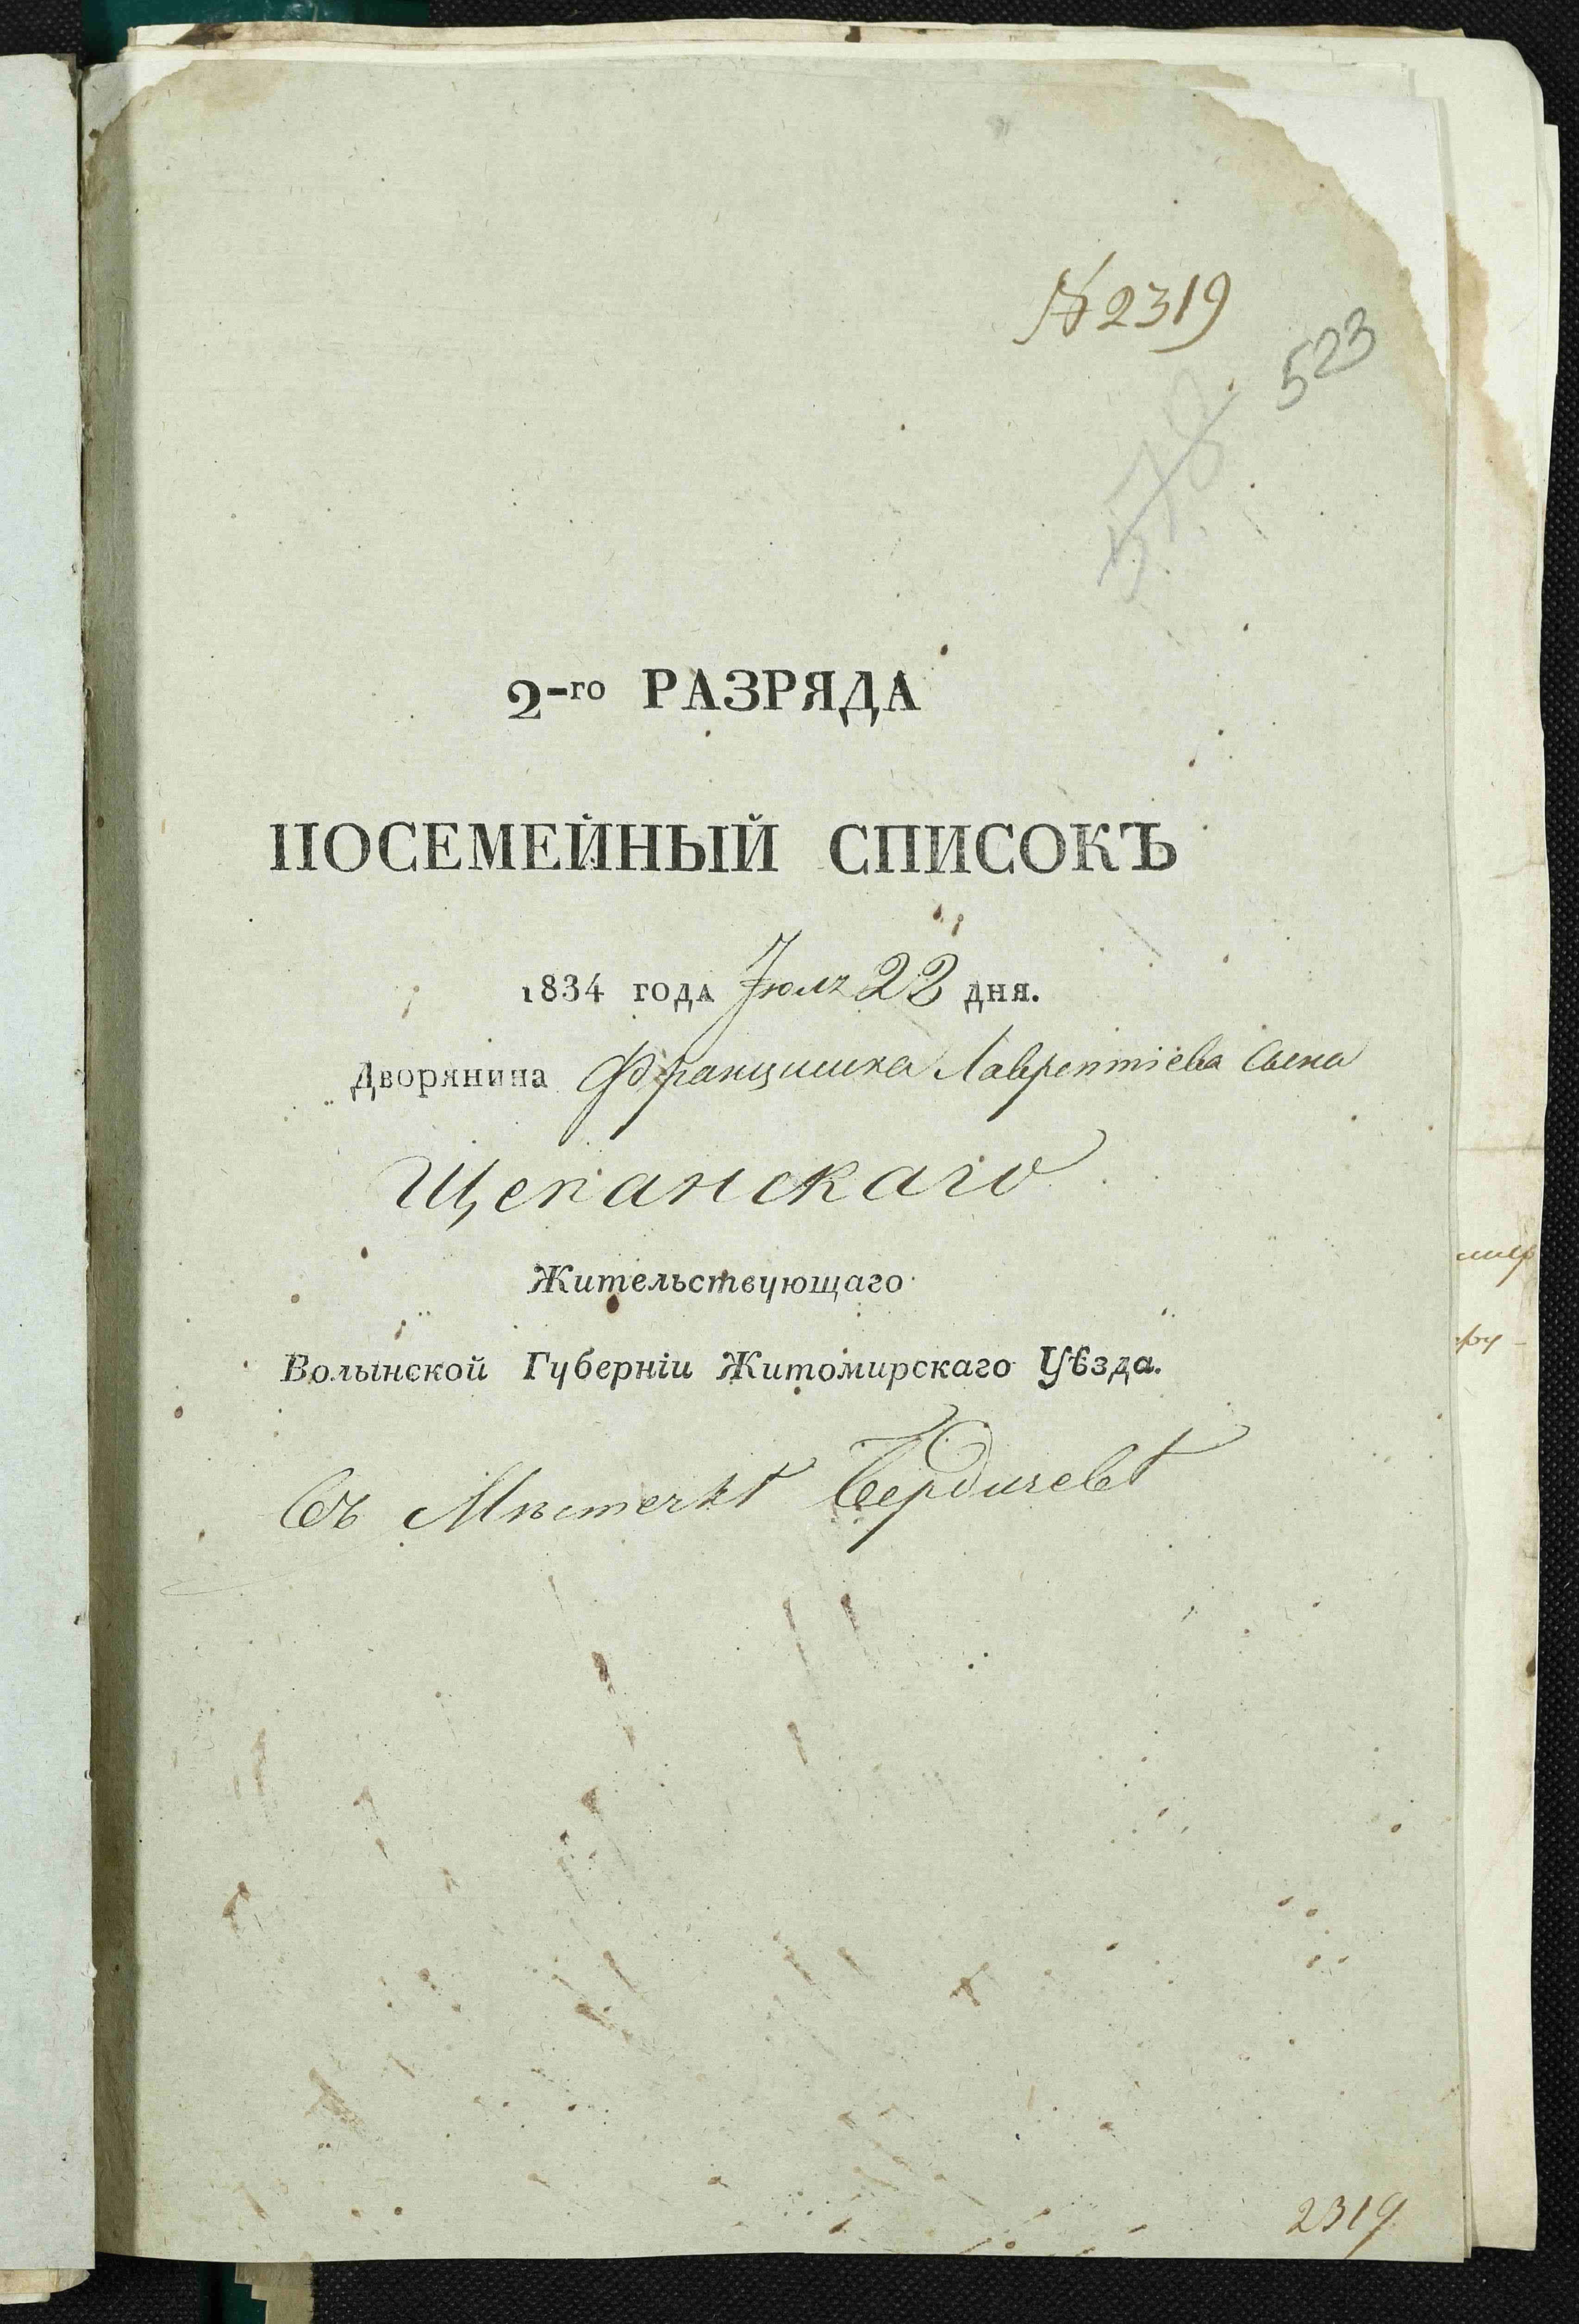 № 2319
523
578
2-го РАЗРЯДА
ПОСЕМЕЙНЫЙ СПИСОКЪ
1834 года Іюля 22 дня.
Дворянина Францишка Лаврентіева Сына
Щепанскаго
Жительствующаго
Волынской Губерніи Житомирскаго Уѣзда.
Въ Мѣстечкѣ Бердичевѣ
2319